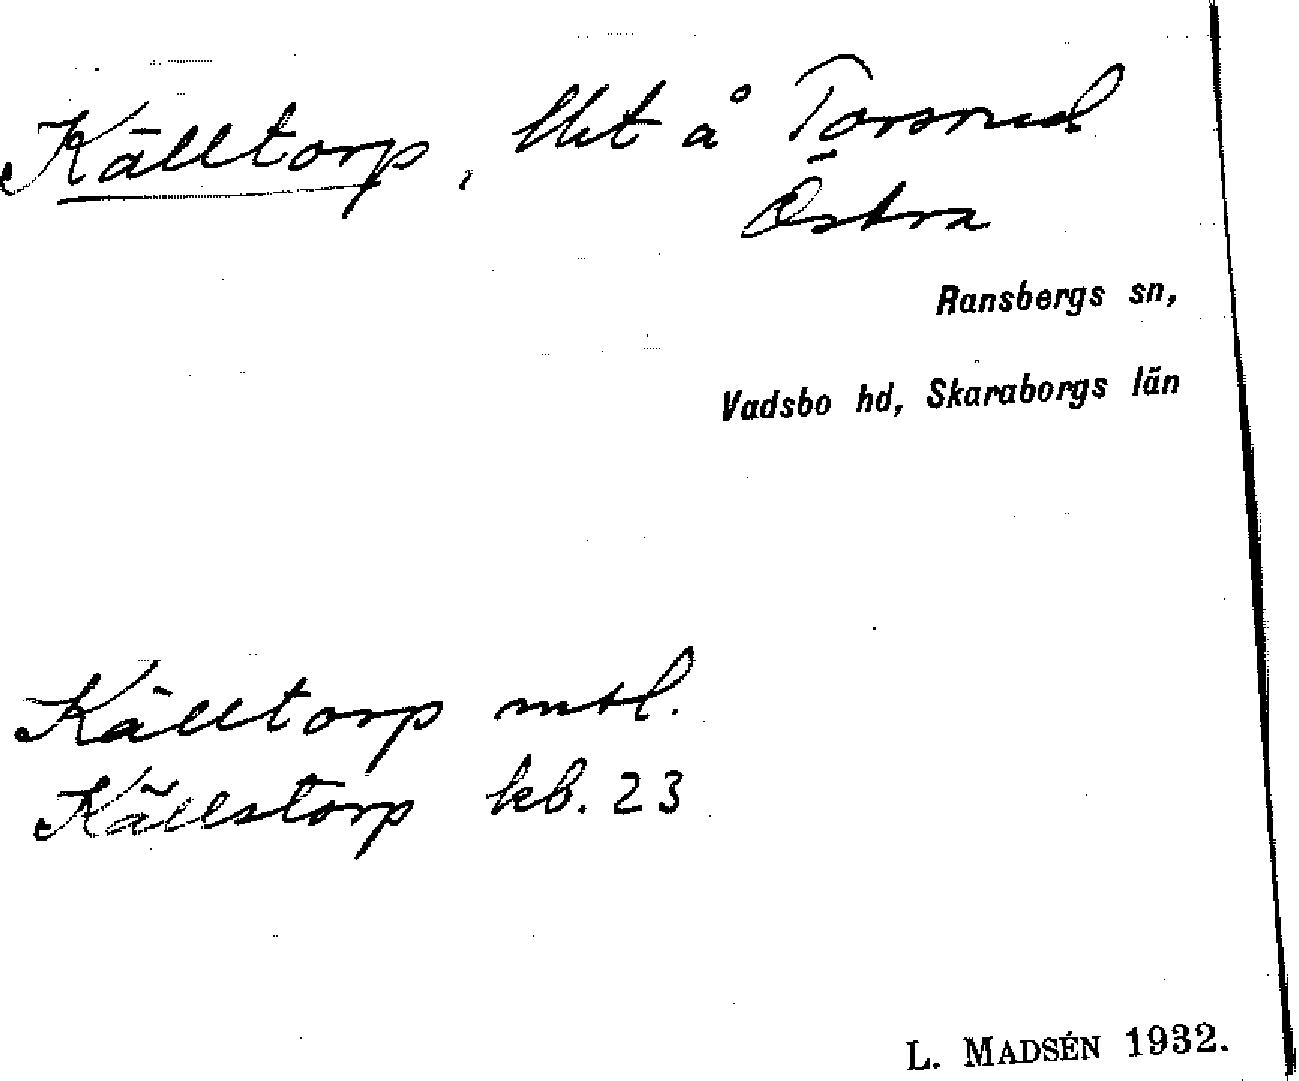 Källtorp, lht å Torsrud
Östra
Ransbergs sn,
Vadsbo hd, Skaraborgs län
Källtorp mtl.
Källstorp kb. 23
L. MADSÉN 1932.